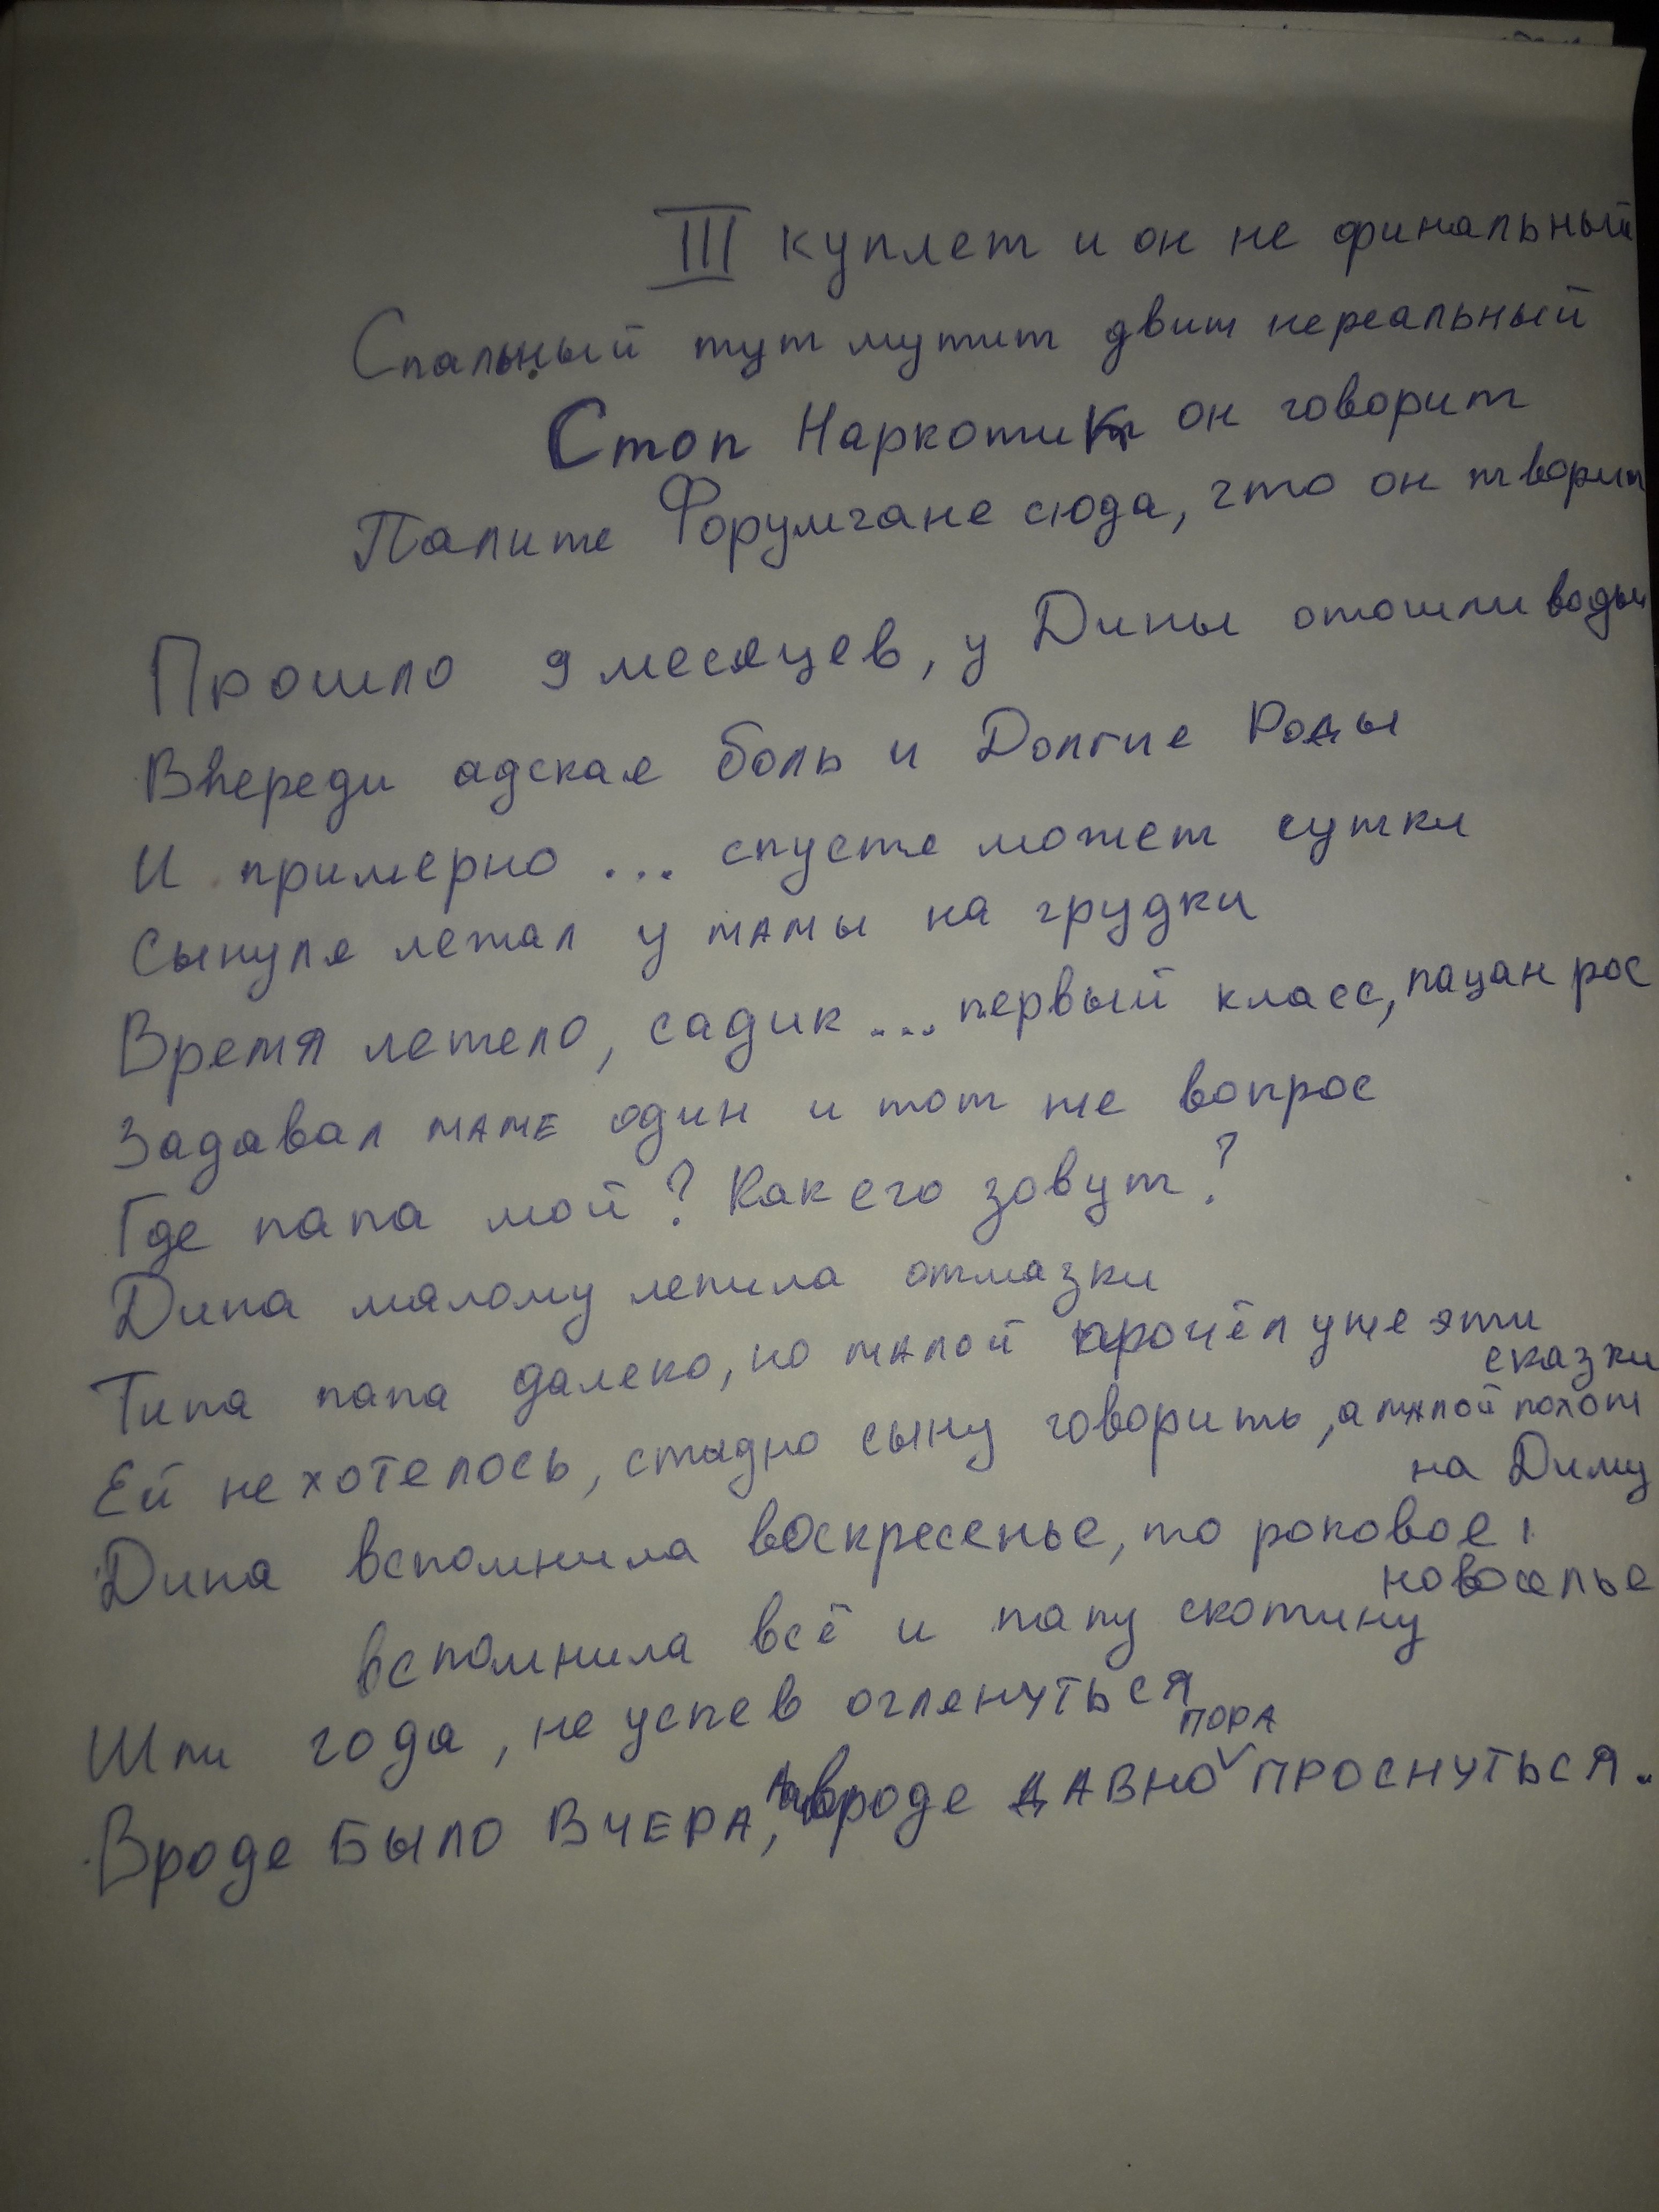 III куплет и он не финальный
Спальный тут мутит движ нереальный
Стоп Наркотик он говорит
Палите Форумчане сюда, что он творит
Прошло 9 месяцев, у Дины отошли воды
Впереди адская боль и Долгие Роды
И примерно ... спустя может сутки
Сынуля лежал у мамы на грудки
Время летело, садик ... первый класс, пацан рос
Задавал маме один и тот же вопрос
Где папа мой? Как его зовут?
Дина малому лепила отмазки
Типа папа далеко, но малой прочёл уже эти
сказки
Ей не хотелось, стыдно сыну говорить, а малой похож
на Диму
Дина вспомнила воскресенье, то роковое,
новоселье
вспомнила всё и папу скотину
Шли года, не успев оглянуться
пора
Вроде было вчера, а вроде давно проснуться.